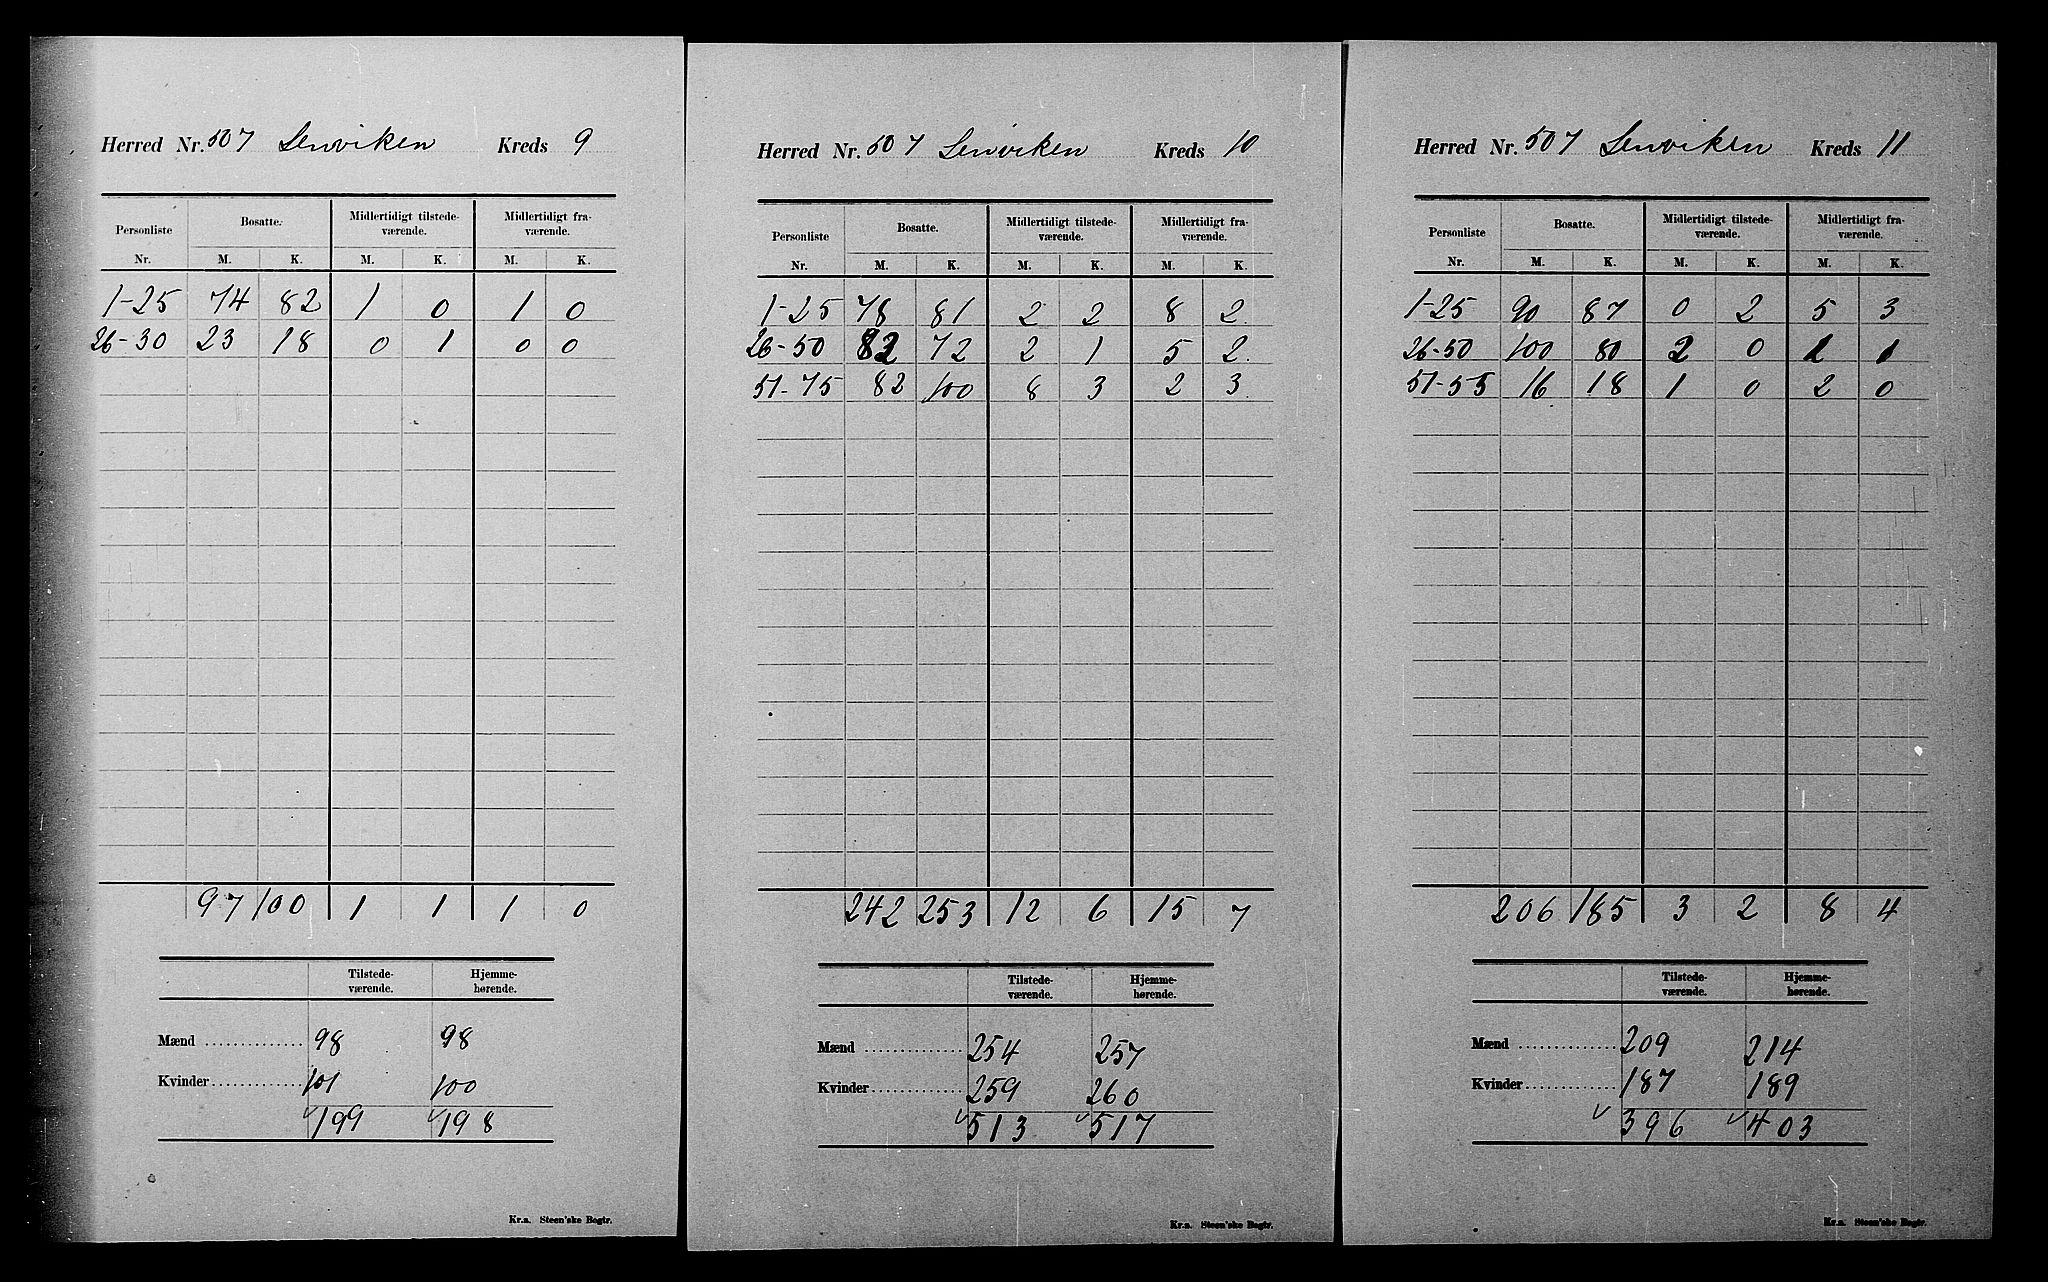 Herred Nr. 507 Lenviken Kreds 9
Personliste Bosatte. Midlertidigt tilstede- Midlertidigt fra-
værende. værende.
Nr. M. K. M. K. M. K.
1-25 74 82 1 0 1 0
26-30 23 18 0 1 0 0
97 100 1 1 1 0
Tilstede- Hjemme-
værende. hørende.
Mænd 98 98
Kvinder 101 100
199 198
Kr.a. Steen'ske Bogtr.
Herred Nr. 507 Lenviken Kreds 10
Personliste Bosatte. Midlertidigt tilstede- Midlertidigt fra-
værende. værende.
Nr. M. K. M. K. M. K.
1-25 78 81 2 2 8 2
26-50 82 72 2 1 5 2
51-75 82 100 8 3 2 3
242 253 12 6 15 7
Tilstede- Hjemme-
værende. hørende.
Mænd 254 257
Kvinder 259 260
513 517
Kr.a. Steen'ske Bogtr.
Herred Nr. 507 Lenviken Kreds 11
Personliste Bosatte. Midlertidigt tilstede- Midlertidigt fra-
værende. værende.
Nr. M. K. M. K. M. K.
1-25 90 87 0 2 5 3
26-50 100 80 2 0 1 1
51-55 16 18 1 0 2 0
206 185 3 2 8 4
Tilstede- Hjemme-
værende. hørende.
Mænd 209 214
Kvinder 187 189
396 403
Kr.a. Steen'ske Bogtr.